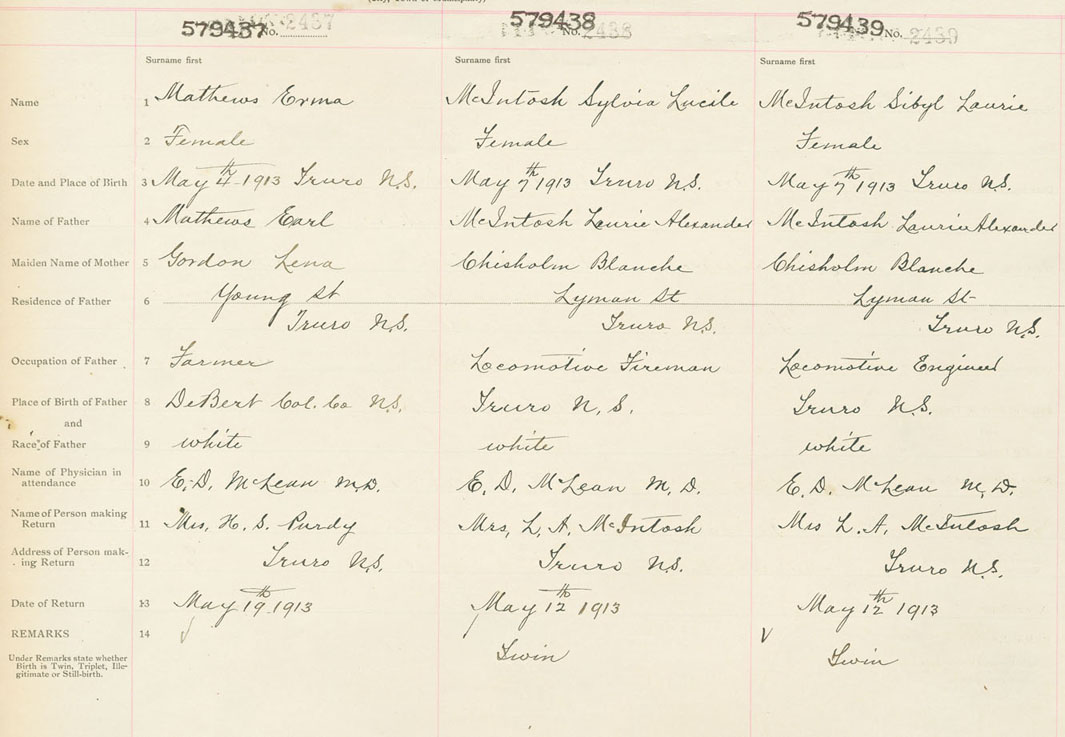 579437 No. 2437 579438 No. 2438 579439 No. 2439
Surname first Surname first Surname first
Name 1 Mathews Erma McIntosh Sylvia Lucile McIntosh Sibyl Laurie
Sex 2 Female Female Female
Date and Place of Birth 3 May 4th 1913 Truro N.S. May 7th 1913 Truro N.S. May 7th 1913 Truro N.S.
Name of Father 4 Mathews Earl McIntosh Laurie Alexander McIntosh Laurie Alexander
Maiden Name of Mother 5 Gordon Lena Chisholm Blanche Chisholm Blanche
Residence of Father 6 Young St Lyman St Lyman St
Truro N.S. Truro N.S. Truro N.S.
Occupation of Father 7 Farmer Locomotive Fireman Locomotive Engineer
Place of Birth of Father 8 DeBert Col. Co N.S. Truro N.S. Truro N.S.
and
Race of Father 9 white white white
Name of Physician in
attendance 10 E. D. McLean M.D. E. D. McLean M. D. E. D. McLean M. D.
Name of Person making
Return 11 Mrs, H. S. Purdy Mrs, L. A. McIntosh Mrs L. A. McIntosh
Address of Person mak-
ing Return 12 Truro N.S. Truro N.S. Truro N.S.
Date of Return 13 May 19th 1913 May 12th 1913 May 12th 1913
REMARKS 14
Under Remarks state whether
Birth is Twin, Triplet, Ille-
gitimate or Still-birth.
Twin Twin